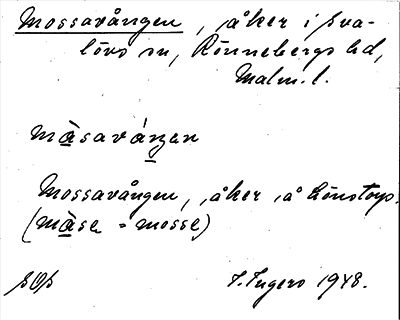 Mossavången, åker i Sva-
lövs sn, Rönnebergs hd,
Malm. l.
màsaváŋen
Mossavången, åker å Lönstorp.
(màse = mosse)
I. Ingers 1948.